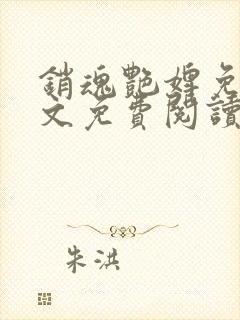 銷魂艷婢免
文免費閱讀
朱洪